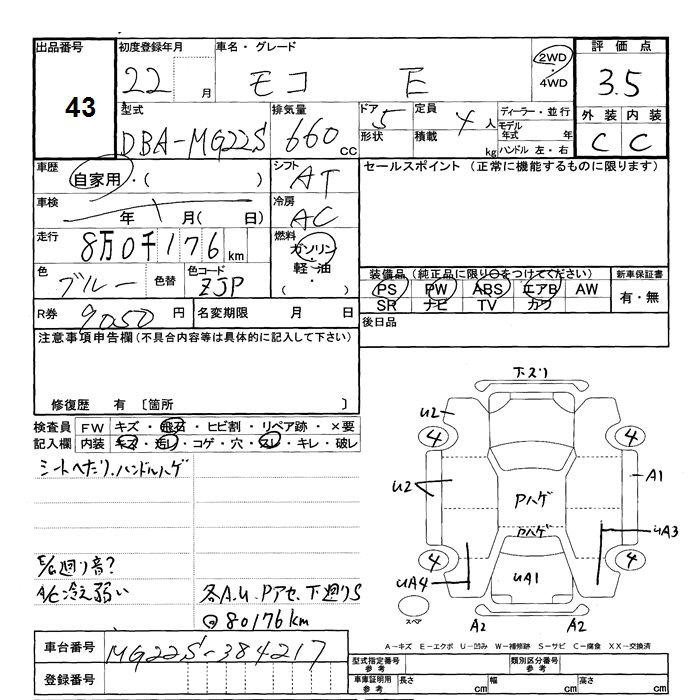 出品番号
43
初度登録年月
22 月
車名・グレード
モコ E
2WD
・
4WD
評価点
3.5
外装 内装
C C
型式
DBA-MG22S
排気量
660 cc
ドア 5
形状
定員 4 人
積載 kg
ディーラー・並行
モデル
年式 年
ハンドル 左・右
車歴
自家用・( )
車検
年 月( 日)
走行
8万0千176 km
色
ブルー
色替
色コード
ZJP
シフト
AT
冷房
AC
燃料
ガソリン
軽・油
( ・ )
セールスポイント (正常に機能するものに限ります)
装備品(純正品に限り○をつけてください)
PS PW ABS エアB AW
SR ナビ TV カワ
新車保証書
有・無
後日品
R券 9050 円
名変期限 月 日
注意事項申告欄(不具合内容等は具体的に記入して下さい)
修復歴 有 〔箇所 〕
検査員
記入欄
FW キズ・飛石・ヒビ割・リペア跡・×要
内装 キズ・汚レ・コゲ・穴・スレ・キレ・破レ
シートへたり、ハンドルハゲ
E/G廻り音?
A/C冷え弱い
各A.U、Pアセ、下廻りS
80176km
車台番号
MG22S-384217
登録番号
下ズリ
U2
4
4
U2
A1
Pハゲ
Pハゲ
UA3
4
4
UA4
UA1
スペア
A2
A2
A-キズ E-エクボ U-凹み W-補修跡 S-サビ C-腐食 XX-交換済
型式指定番号
参考
類別区分番号
参考
車庫証明用
参考
長さ cm
幅 cm
高さ cm